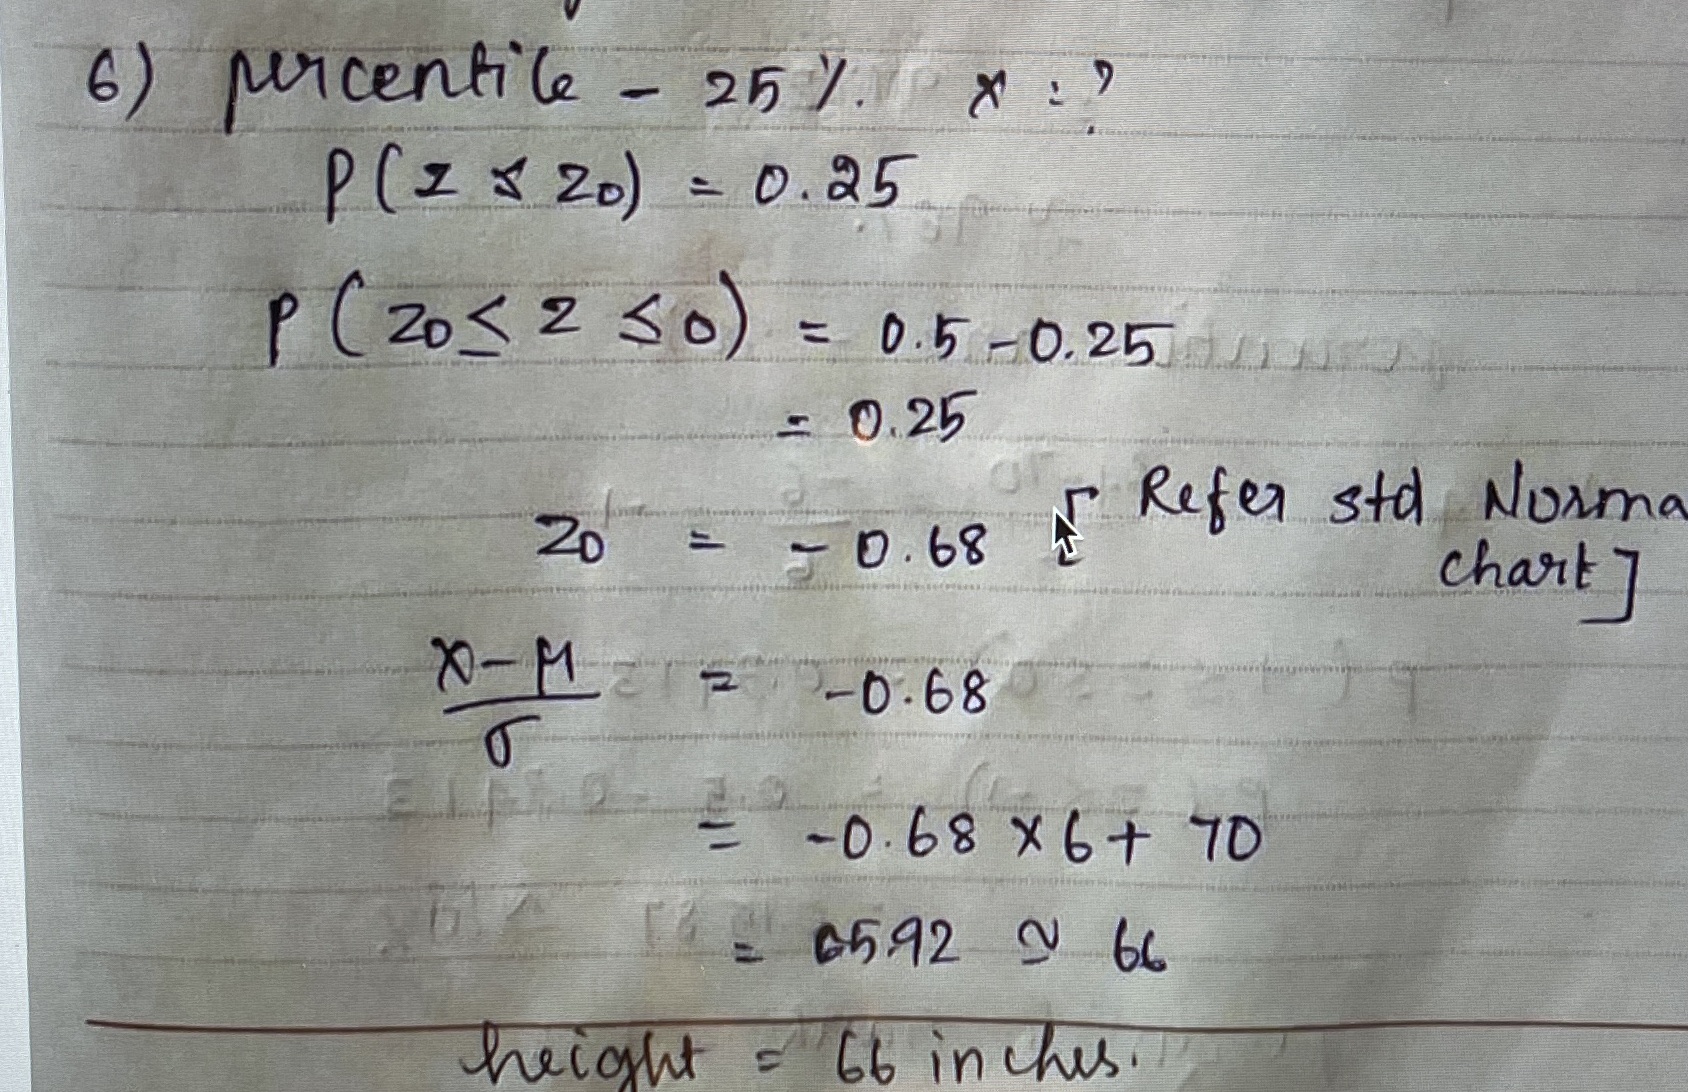 6) percentile - 25 %. x : ?
P(z ≤ z0) = 0.25
P(z0 ≤ z ≤ 0) = 0.5 - 0.25
= 0.25
z0 = -0.68 [ Refer std Norma
chart ]
x-μ/σ = -0.68
= -0.68 x 6 + 70
= 65.92 ≃ 66
height = 66 inches.